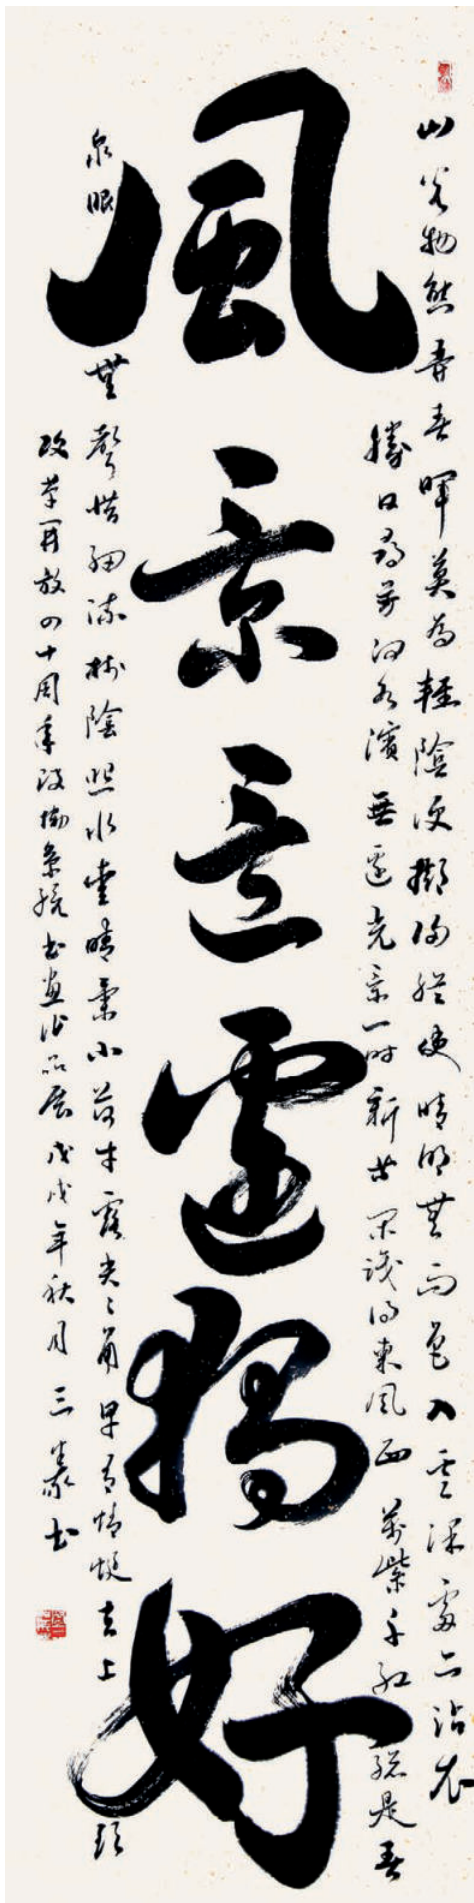 山光物態弄春暉莫為輕陰便擬歸縱使晴明無雨色入雲深處亦沾衣
勝日尋芳泗水濱無邊光景一時新等閒識得東風面萬紫千紅總是春
風景這邊獨好
泉眼無聲惜細流樹陰照水愛晴柔小荷才露尖々角早有蜻蜓立上頭
改革開放四十周年政協系統書畫作品展戊戌年秋月三書